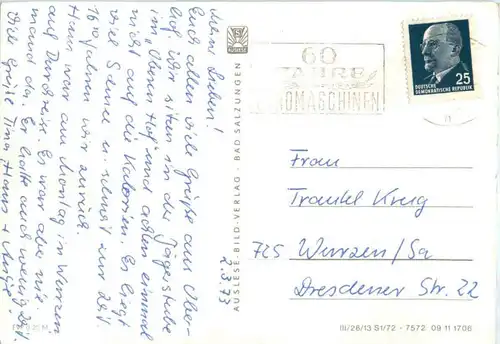 2.3.73
Meine Lieben!
Euch allen viele Grüße aus Ober-
hof. Wir sitzen in der Jägerstube
im „Oberen Hof“ und achten einmal
nicht auf die Kalorien. Es liegt
viel Schnee u. schneit zur Zeit.
16.10 fahren wir zurück.
Hans war am Montag in Wurzen
auf Durchreise. Es war aber nie-
mand da. Er hatte auch wenig Zeit.
Viele Grüße Hans +
AUSLESE
AUSLESE-BILD-VERLAG · BAD SALZUNGEN
60
JAHRE
MASCHINEN
25
DEUTSCHE
DEMOKRATISCHE REPUBLIK
Frau
Traudel Krug
725 Wurzen/Sa
Dresdener Str. 22
III/26/13 S1/72 - 7572 09 11 1706